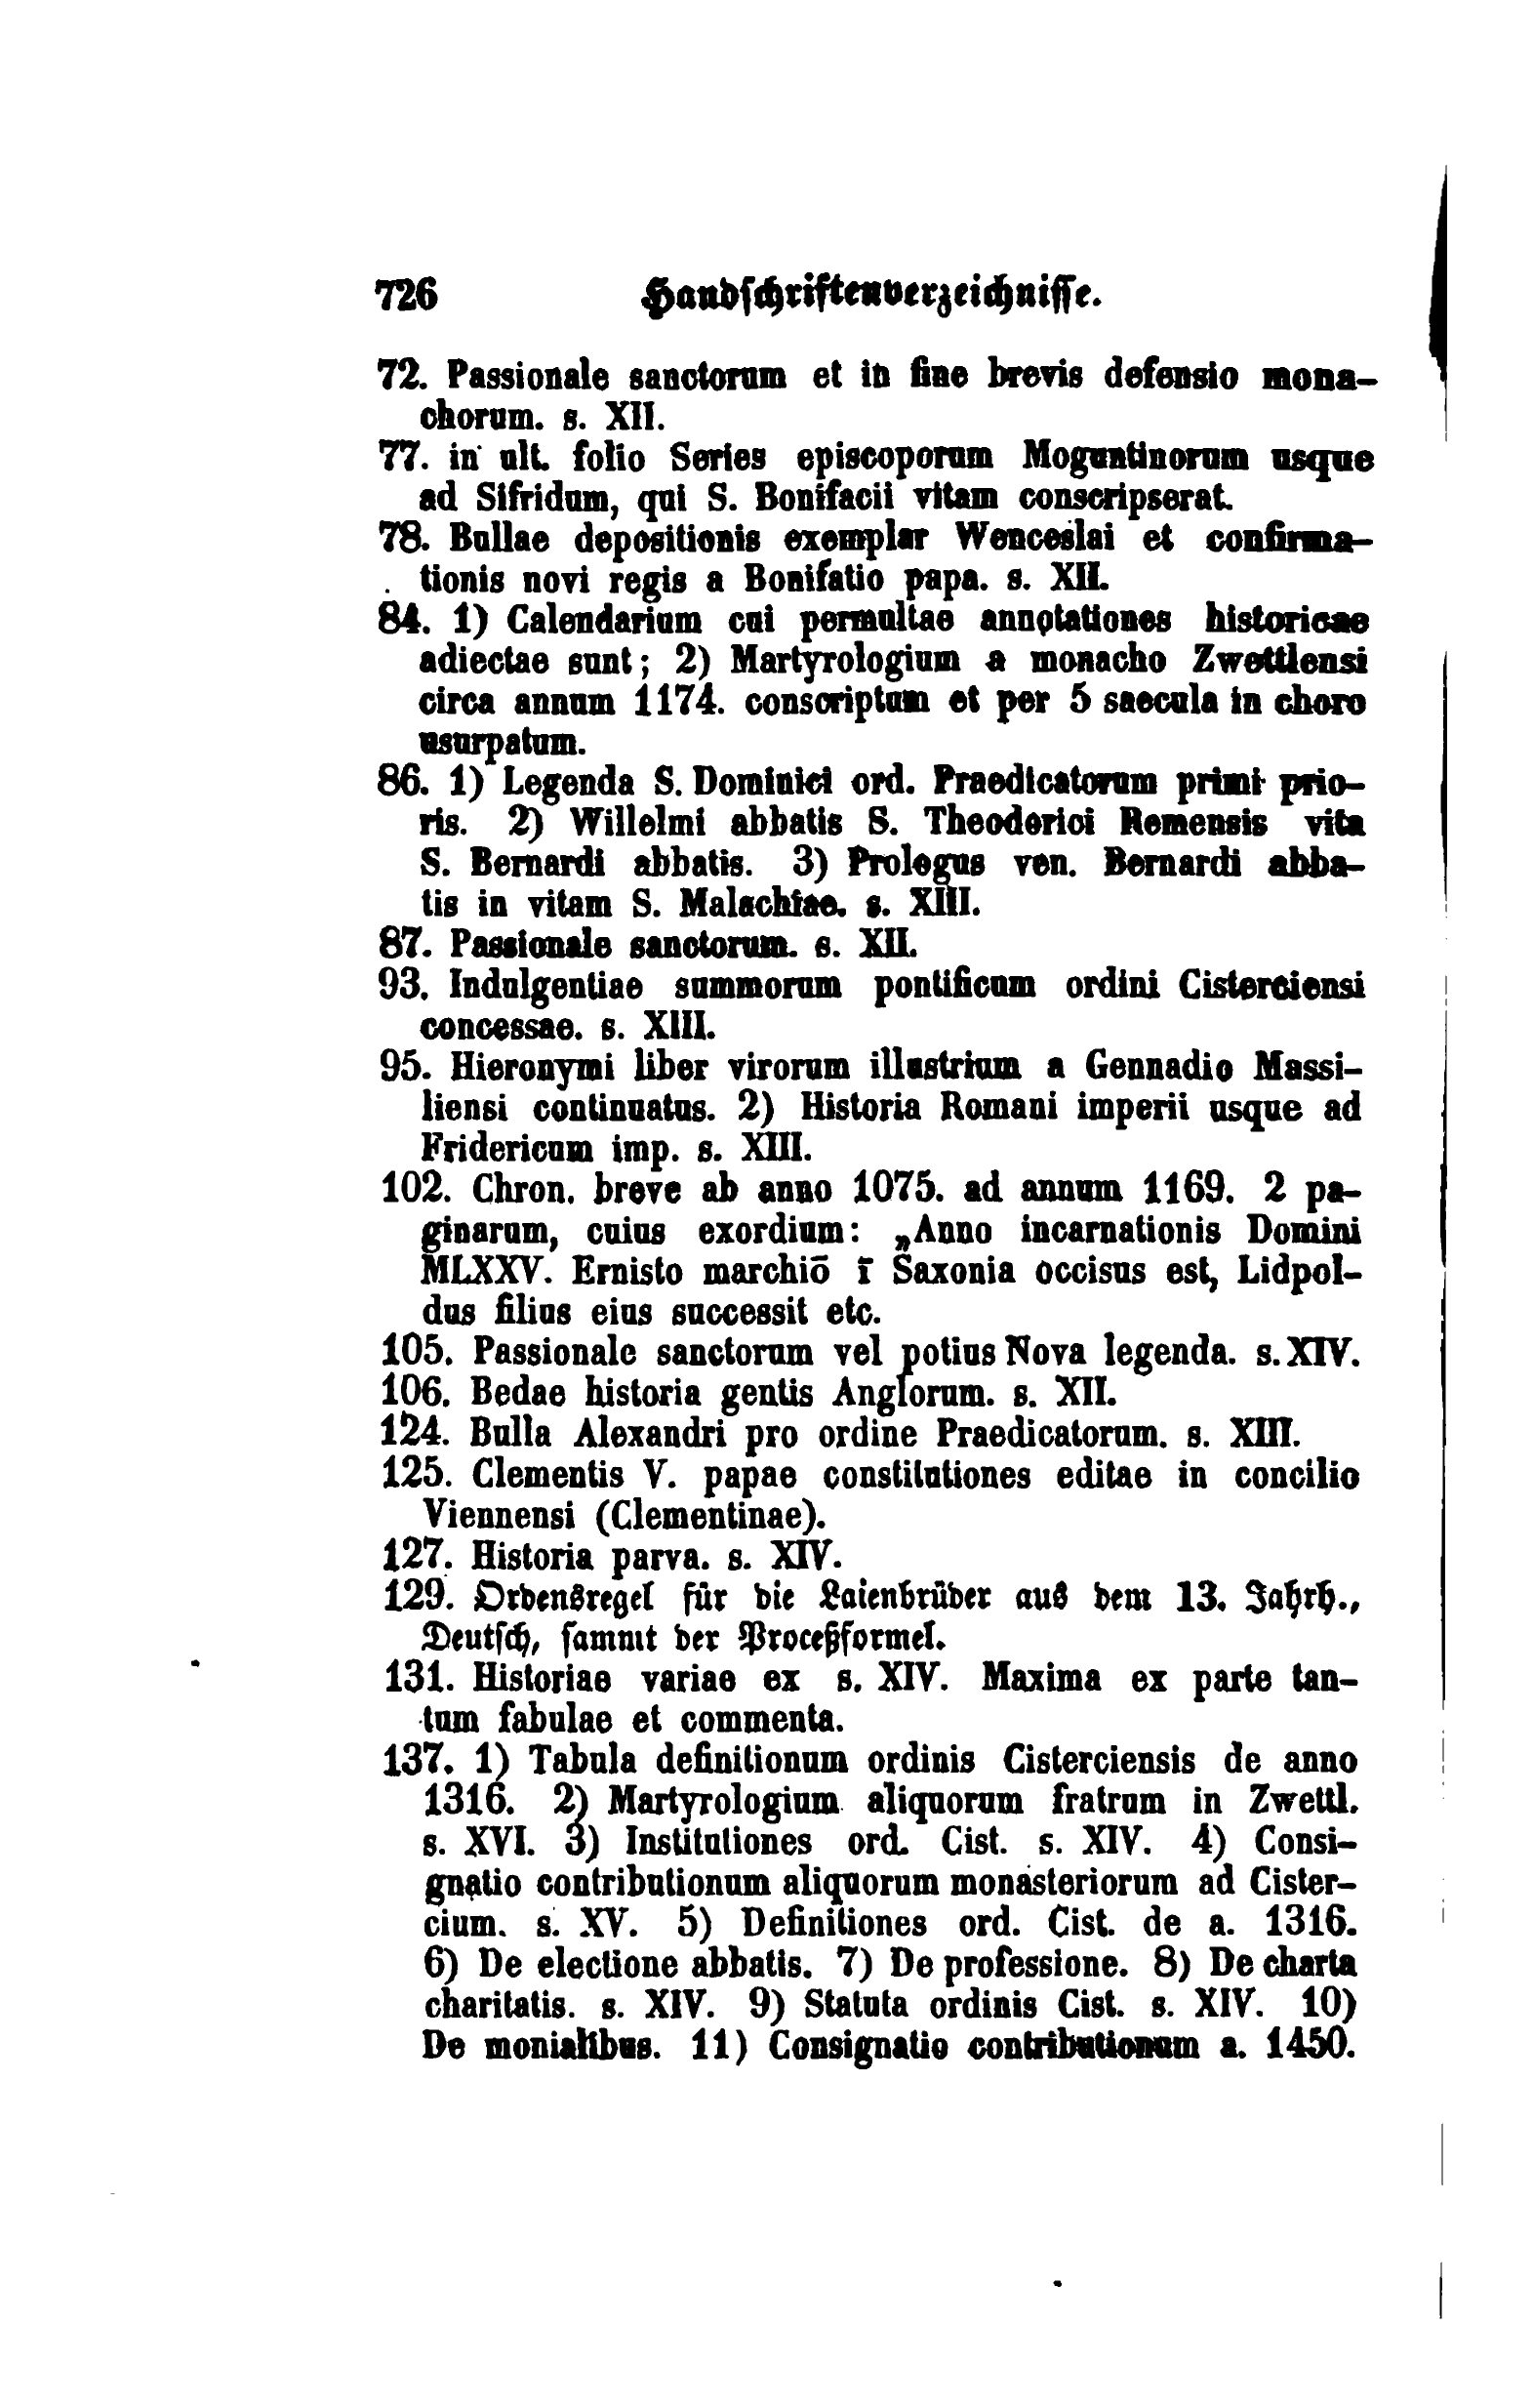 726 Handschriftenverzeichnisse.
72. Passionale sanctorum et in fine brevis defensio mona-
chorum. s. XII.
77. in ult. folio Series episcoporum Moguntinorum usque
ad Sifridum, qui S. Bonifacii vitam conscripserat.
78. Bullae depositionis exemplar Wenceslai et confirma-
tionis novi regis a Bonifatio papa. s. XII.
84. 1) Calendarium cui permultae annotationes historicae
adiectae sunt; 2) Martyrologium a monacho Zwettlensi
circa annum 1174. conscriptum et per 5 saecula in choro
usurpatum.
86. 1) Legenda S. Dominici ord. Praedicatorum primi prio-
ris. 2) Willelmi abbatis S. Theoderici Remensis vita
S. Bernardi abbatis. 3) Prologus ven. Bernardi abba-
tis in vitam S. Malachiae. s. XIII.
87. Passionale sanctorum. s. XII.
93. Indulgentiae summorum pontificum ordini Cisterciensi
concessae. s. XIII.
95. Hieronymi liber virorum illustrium a Gennadio Massi-
liensi continuatus. 2) Historia Romani imperii usque ad
Fridericum imp. s. XIII.
102. Chron. breve ab anno 1075. ad annum 1169. 2 pa-
ginarum, cuius exordium: „Anno incarnationis Domini
MLXXV. Ernisto marchiō ī Saxonia occisus est, Lidpol-
dus filius eius successit etc.
105. Passionale sanctorum vel potius Nova legenda. s. XIV.
106. Bedae historia gentis Anglorum. s. XII.
124. Bulla Alexandri pro ordine Praedicatorum. s. XIII.
125. Clementis V. papae constitutiones editae in concilio
Viennensi (Clementinae).
127. Historia parva. s. XIV.
129. Ordensregel für die Laienbrüder aus dem 13. Jahrh.,
Deutsch, sammt der Proceßformel.
131. Historiae variae ex s. XIV. Maxima ex parte tan-
tum fabulae et commenta.
137. 1) Tabula definitionum ordinis Cisterciensis de anno
1316. 2) Martyrologium aliquorum fratrum in Zwettl.
s. XVI. 3) Institutiones ord. Cist. s. XIV. 4) Consi-
gnatio contributionum aliquorum monasteriorum ad Cister-
cium. s. XV. 5) Definitiones ord. Cist. de a. 1316.
6) De electione abbatis. 7) De professione. 8) De charta
charitatis. s. XIV. 9) Statuta ordinis Cist. s. XIV. 10)
De monialibus. 11) Consignatio contributionum a. 1450.